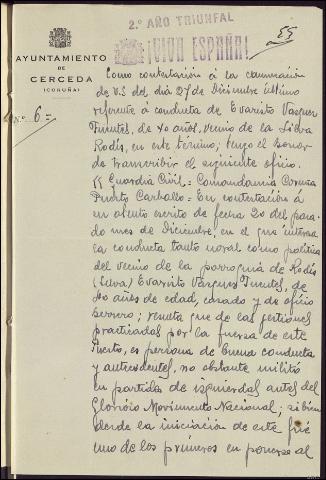 2.º AÑO TRIUNFAL
¡VIVA ESPAÑA!
55
AYUNTAMIENTO
DE
CERCEDA
(CORUÑA)
N.º 6 =
Como contestación á la comunicación
de V.S del dia 27 de Diciembre último
referente á conducta de Evaristo Vazquez
Fuentes, de 40 años, vecino de la Silva
Rodis, en este término; tengo el honor
de transcribir el siguiente oficio.
"Guardia Civil = Comandancia Coruña
Puesto Carballo = En contestación á
su atento escrito de fecha 20 del pasa-
do mes de Diciembre, en el que interesa
la conducta tanto moral como politica
del vecino de la parroquia de Rodis
(Silva) Evaristo Vázquez Fuentes, de
40 años de edad, casado y de oficio
herrero; resulta que de las gestiones
practicadas por la fuerza de este
Puesto, es persona de buena conducta
y antecedentes, no obstante militó
en partidos de izquierdas antes del
Glorioso Movimiento Nacional; si bien
desde la iniciación de este fué
uno de los primeros en ponerse al